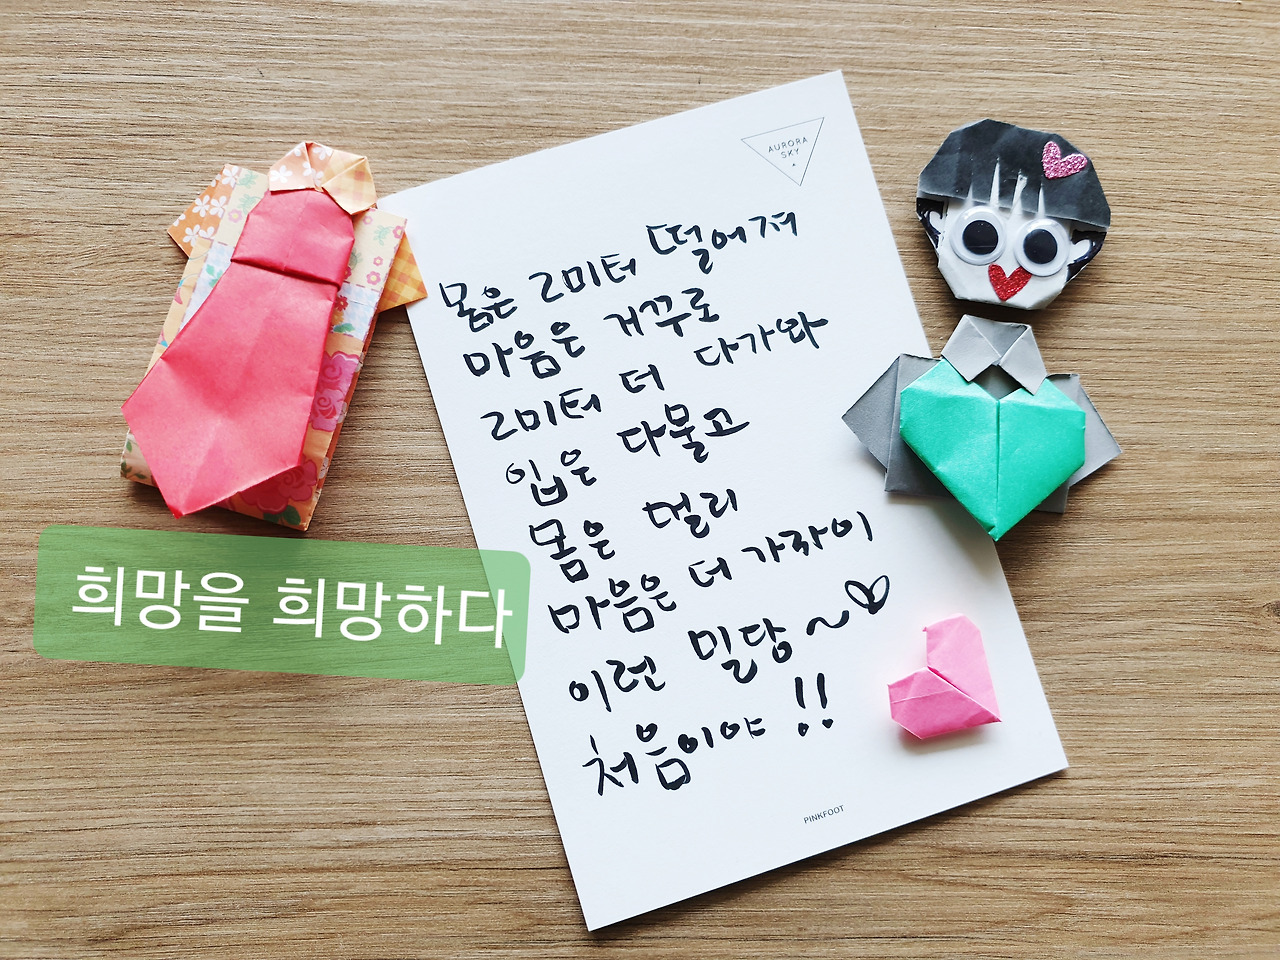 AURORA
SKY
몸은 2미터 떨어져
마음은 거꾸로
2미터 더 다가와
입은 다물고
몸은 멀리
마음은 더 가까이
이런 밀당~♡
처음이야 !!
PINKFOOT
희망을 희망하다